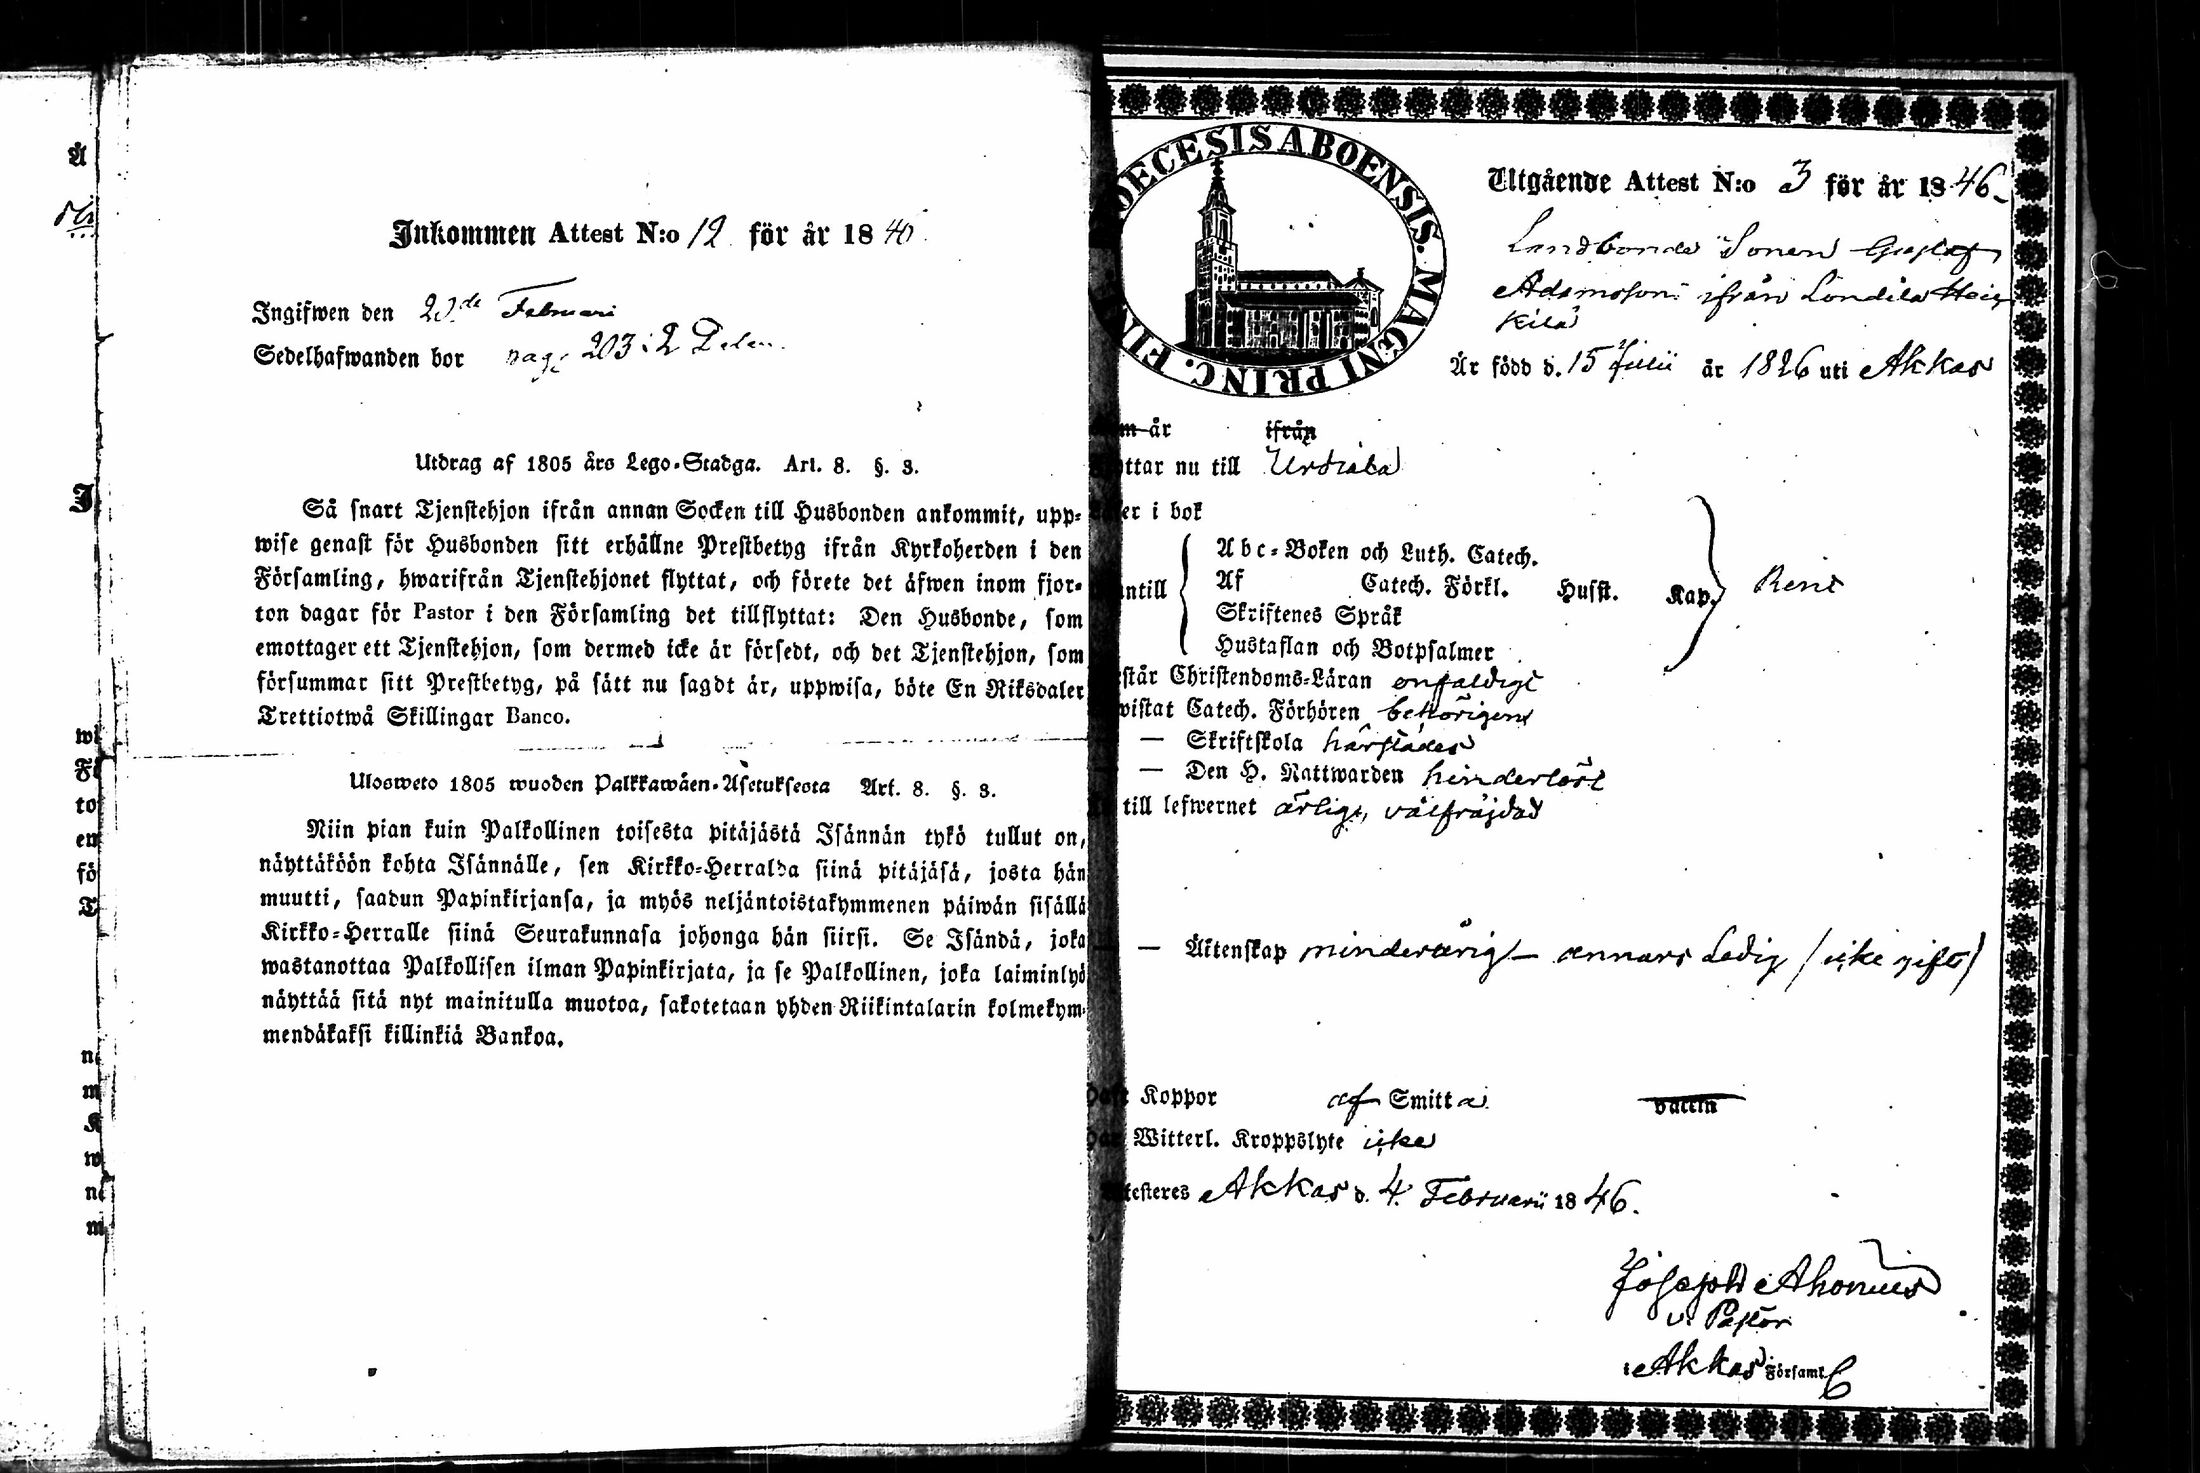 Å
I
wi
Fö
to
em
fö
T
nä
m
K
w
nä
m
Inkommen Attest N:o 12 för år 1846.
Ingifwen den 20de Februari
Sedelhafwanden bor pag. 203 i 2 Delen.
Utdrag af 1805 års Lego-Stadga. Art. 8. §. 3.
Så snart Tjenstehjon ifrån annan Socken till Husbonden ankommit, upp-
wise genast för Husbonden sitt erhållne Prestbetyg ifrån Kyrkoherden i den
Församling, hwarifrån Tjenstehjonet flyttat, och förete det äfwen inom fjor-
ton dagar för Pastor i den Församling det tillflyttat: Den Husbonde, som
emottager ett Tjenstehjon, som dermed icke är försedt, och det Tjenstehjon, som
försummar sitt Prestbetyg, på sätt nu sagdt är, uppwisa, böte En Riksdaler
Trettiotwå Skillingar Banco.
Ulosweto 1805 wuoden Palkkawäen-Asetuksesta Art. 8. §. 3.
Niin pian kuin Palkollinen toisesta pitäjästä Isännän tykö tullut on,
näyttäköön kohta Isännälle, sen Kirkko-Herralda siinä pitäjäsä, josta hän
muutti, saadun Papinkirjansa, ja myös neljäntoistakymmenen päiwän sisällä
Kirkko-Herralle siinä Seurakunnasa johonga hän siirsi. Se Isändä, joka
wastanottaa Palkollisen ilman Papinkirjata, ja se Palkollinen, joka laiminlyö
näyttää sitä nyt mainitulla muotoa, sakotetaan yhden Riikintalarin kolmekym-
mendäkaksi killinkiä Bankoa.
DIOECESIS ABOENSIS. MAGNI PRINC. FIN
Utgående Attest N:o 3 för år 1846.
Landbonde Sonen Gustaf
Adamsson ifrån Londila Heik
kilä
Är född d. 15 Julii år 1826 uti Akkas
m år ifrån
ttar nu till Urdiala
er i bok
Abc-Boken och Luth. Catech.
antill Af Catech. Förkl. Husst. Kap. Rent
Skriftenes Språk
Hustaflan och Botpsalmer
står Christendoms-Läran enfaldigt
wistat Catech. Förhören behörigen
— Skriftskola härstädes
— Den H. Nattwarden hinderlöst
till lefwernet ärlig, välfräjdad
— Äktenskap minderårig — annars Ledig / icke gift /
Haft Koppor af Smitta vaccin
Har Witterl. Kroppslyte icke
Attesteres Akkas d. 4 Februarii 1846.
Joseph Ahonius
v. Pastor
i Akkas Församl.